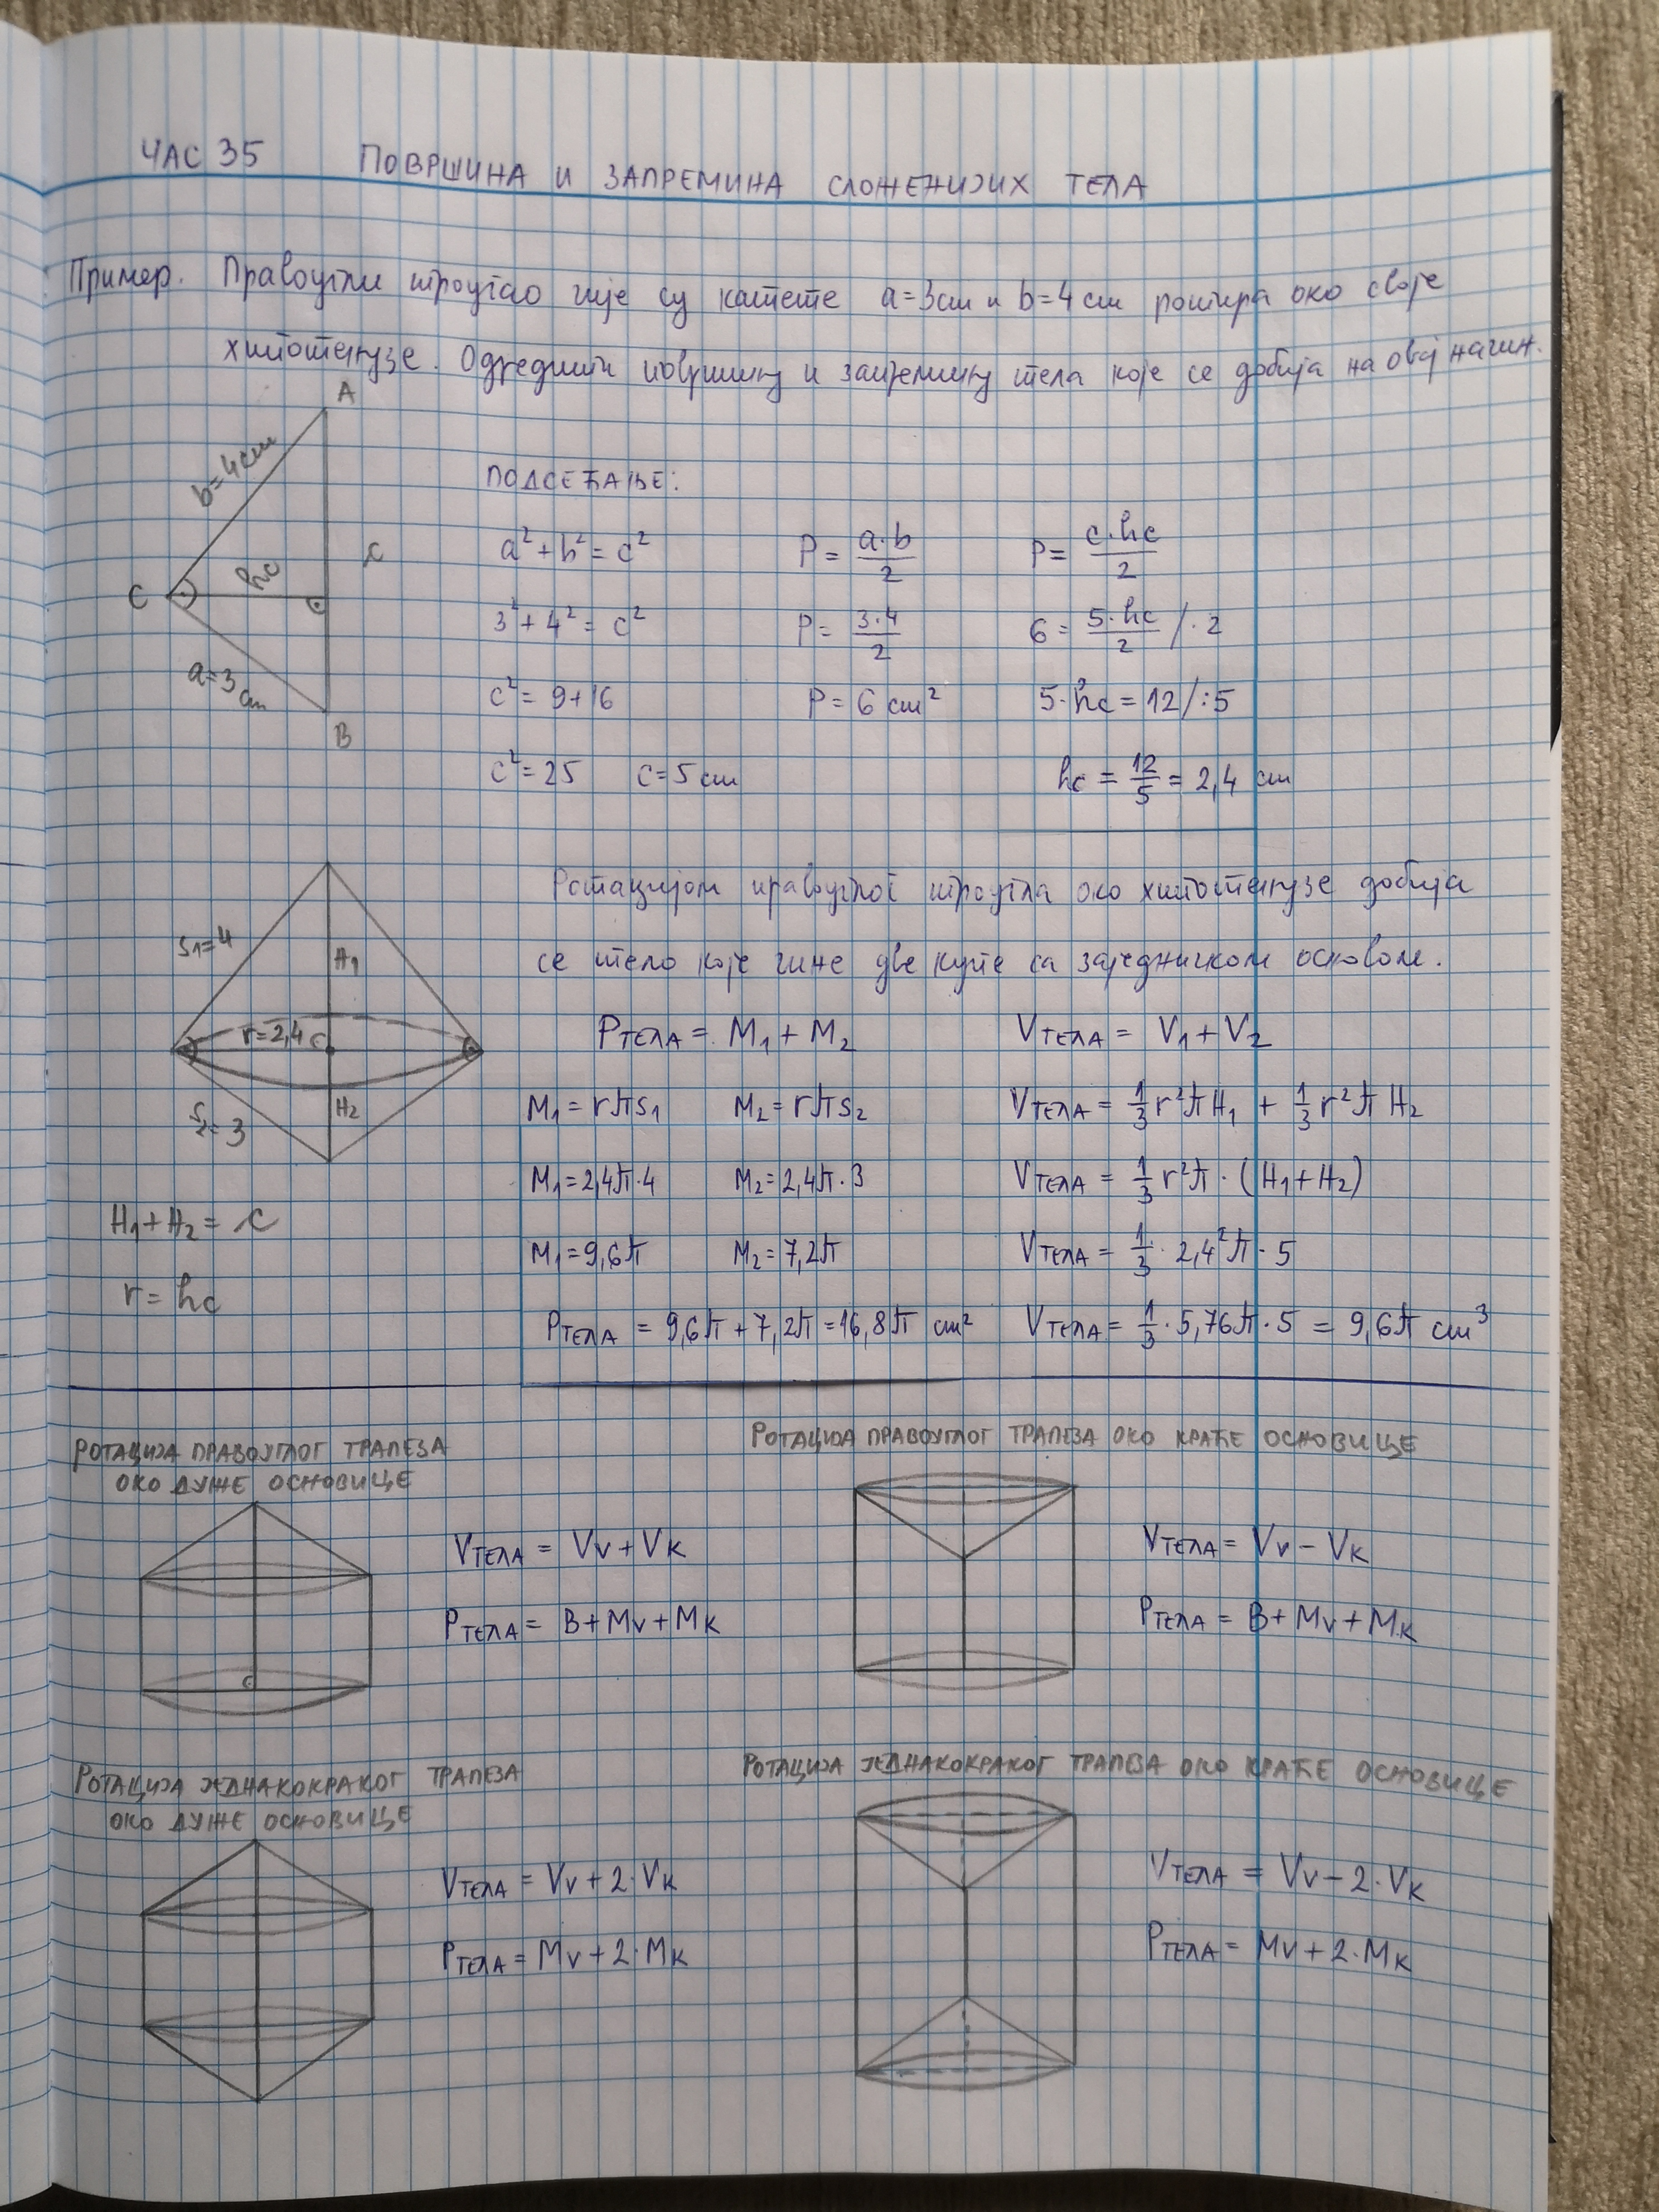 ЧАС 35 ПОВРШИНА И ЗАПРЕМИНА СЛОЖЕНИЈИХ ТЕЛА
Пример. Правоугли троугао чије су катете a=3cm и b=4cm ротира око своје
хипотенузе. Одредити површину и запремину тела које се добија на овај начин.
A
b=4cm
C
hc
c
a=3cm
B
ПОДСЕЋАЊЕ:
a²+b²=c² P=a·b/2 P=c·hc/2
3²+4²=c² P=3·4/2 6=5·hc/2 /·2
c²=9+16 P=6 cm² 5·hc=12/:5
c²=25 c=5cm hc=12/5=2,4 cm
s1=4
H1
r=2,4
H2
s2=3
H1+H2=c
r=hc
Ротацијом правоуглог троугла око хипотенузе добија
се тело које чине две купе са заједничком основом.
PТЕЛА = M1+M2 VТЕЛА = V1+V2
M1=rπs1 M2=rπs2 VТЕЛА = 1/3 r²πH1 + 1/3 r²πH2
M1=2,4π·4 M2=2,4π·3 VТЕЛА = 1/3 r²π·(H1+H2)
M1=9,6π M2=7,2π VТЕЛА = 1/3·2,4²π·5
PТЕЛА = 9,6π+7,2π=16,8π cm² VТЕЛА = 1/3·5,76π·5 = 9,6π cm³
РОТАЦИЈА ПРАВОУГЛОГ ТРАПЕЗА
ОКО ДУЖЕ ОСНОВИЦЕ
VТЕЛА = VV+VK
PТЕЛА = B+MV+MK
РОТАЦИЈА ПРАВОУГЛОГ ТРАПЕЗА ОКО КРАЋЕ ОСНОВИЦЕ
VТЕЛА = VV-VK
PТЕЛА = B+MV+MK
РОТАЦИЈА ЈЕДНАКОКРАКОГ ТРАПЕЗА
ОКО ДУЖЕ ОСНОВИЦЕ
VТЕЛА = VV+2·VK
PТЕЛА = MV+2·MK
РОТАЦИЈА ЈЕДНАКОКРАКОГ ТРАПЕЗА ОКО КРАЋЕ ОСНОВИЦЕ
VТЕЛА = VV-2·VK
PТЕЛА = MV+2·MK